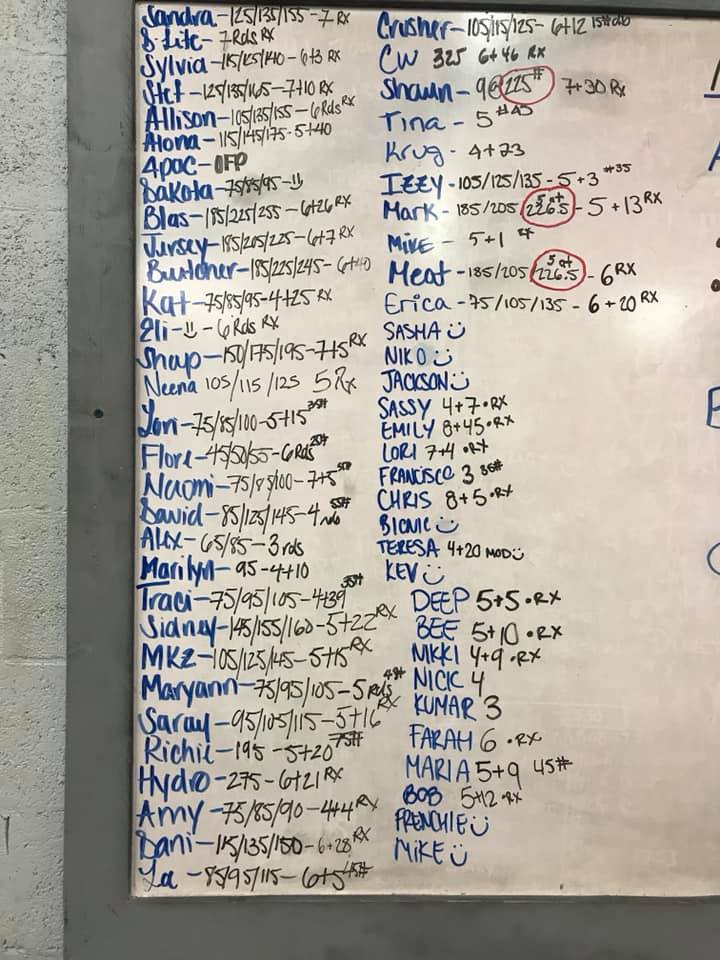 Sandra-125/135/155-7 Rx
B-Lite- 7Rds Rx
Sylvia-115/125/140-6+3 RX
Stef-125/135/165-7+10 RX
Allison-105/135/155-6Rds RX
Alona-115/145/175-5+40
Apoc-OFP
Dakota-75/85/95-
Blas-185/225/255-6+26 RX
Jersey-185/205/225-6+7 RX
Butcher-185/225/245-6+40
Kat-75/85/95-4+25 RX
Eli- -6 Rds RX
Shap-150/175/195-7+5 RX
Neena 105/115/125 5 Rx
Lori-75/85/100-5+15 35#
Flore-45/50/55-6Rds
Naomi-75/85/100-7+5
David-85/125/145-4
Alex-65/85-3rds
Marilyn-95-4+10
Traci-75/95/105-4+39 35#
Sidney-145/155/160-5+22 RX
MKZ-105/125/145-5+15 RX
Maryann-75/95/105-5 rds
Saray-95/105/115-5+16 RX
Richie-195-5+20 75#
Hydro-275-6+21 RX
Amy-75/85/90-4+4 RX
Dani-115/135/150-6+28 RX
La-85/95/115-6+5 45#
Crusher-105/115/125-6+12
CW 325 6+46 RX
Shawn-9@225# 7+30 Rx
Tina-5 #45
Krug-4+23
IZZY-105/125/135-5+3 #35
Mark-185/205/226.5-5+13 RX
MIKE-5+1
Meat-185/205/226.5-6 RX
Erica-75/105/135-6+20 RX
SASHA
NIKO
JACKSON
SASSY 4+7•RX
EMILY 8+45•RX
LORI 7+4•RX
FRANCISCO 3 35#
CHRIS 8+5•RX
BIONIC
TERESA 4+20 MOD
KEV
DEEP 5+5•RX
BEE 5+10•RX
NIKKI 4+9•RX
NICK 4
KUMAR 3
FARAH 6•RX
MARIA 5+9 45#
BOB 5+12•RX
FRENCHIE
MIKE